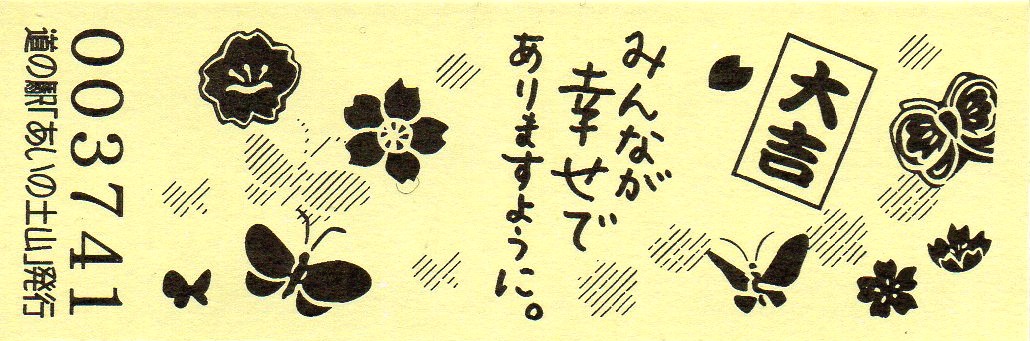 大吉
みんなが
幸せで
ありますように。
003741
道の駅「あいの土山」発行